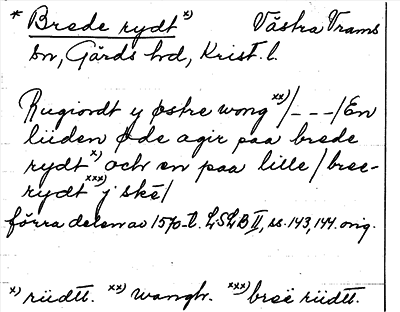 * Brede rydt x) Västra Trams
sn, Gärds hd, Krist. l.
Rugiordt y østre wong xx) /_ _ _/ En
liiden øde agir paa brede
rydt x) och en paa lille / bree-
rydt xxx) j skë /
förra delen av 1570-t. LSLB II, ss. 143, 144. orig.
x) riidtt. xx) wangh. xxx) breë riidtt.